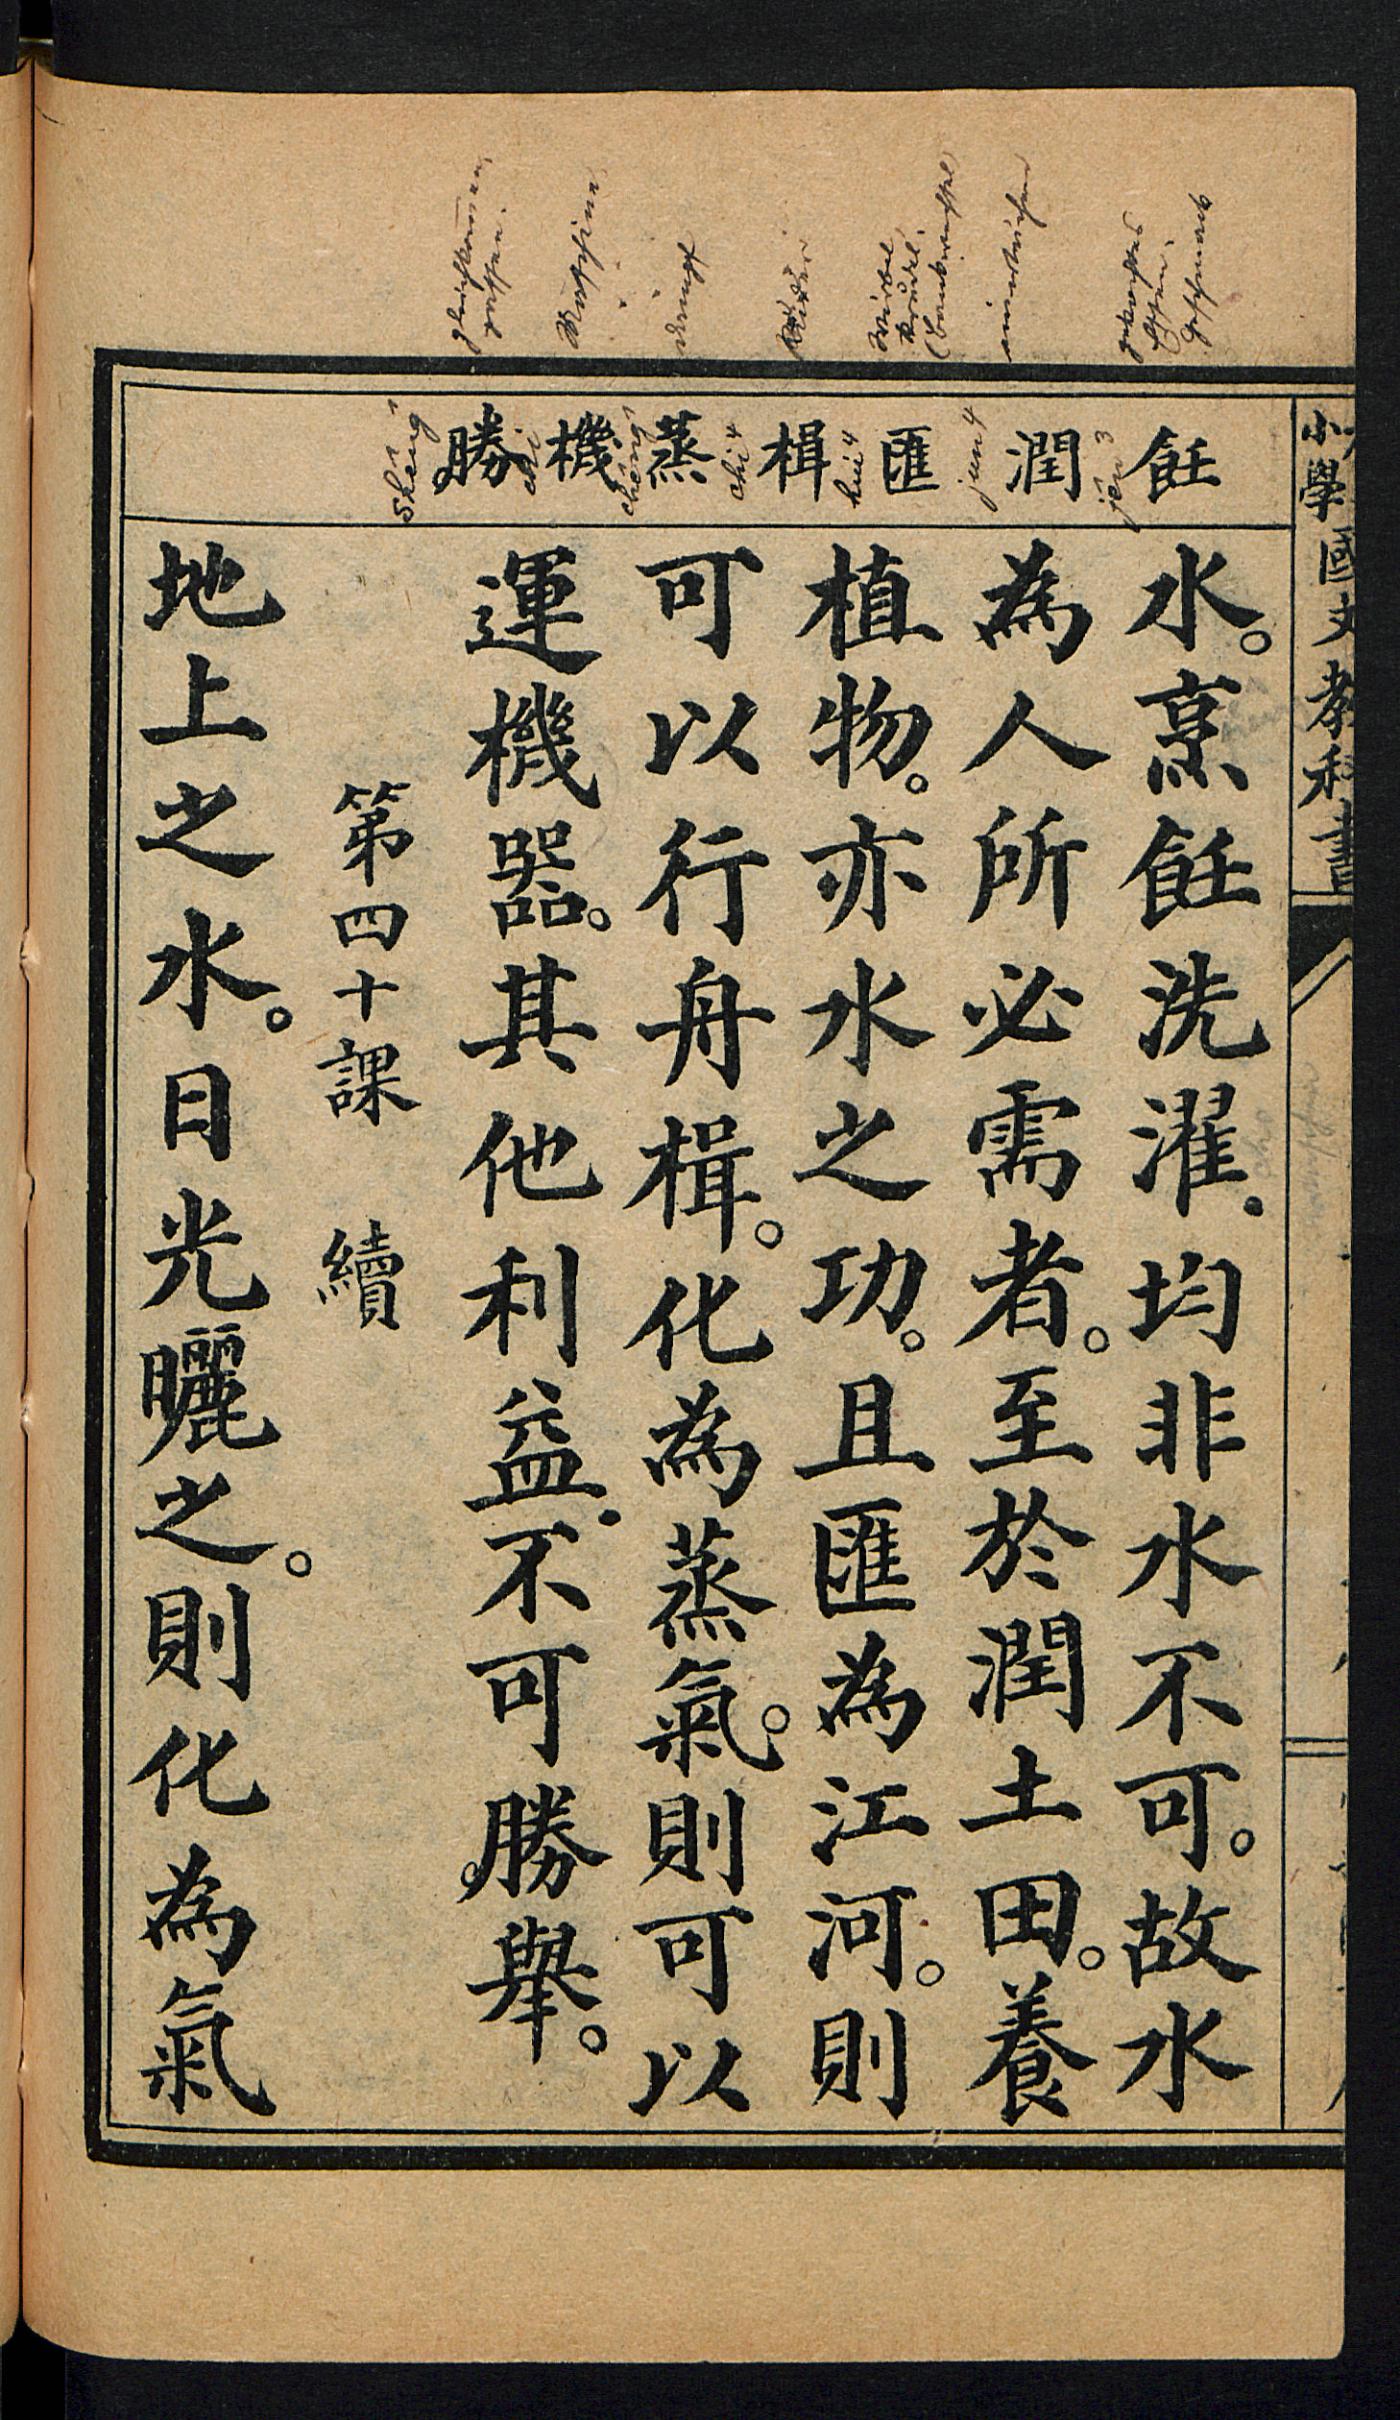 小學國文教科書
飪
潤
匯
楫
蒸
機
勝
jên³
jun⁴
hui⁴
chi⁴
水。烹飪洗濯.均非水不可。故水
為人所必需者。至於潤土田。養
植物。亦水之功。且匯為江河。則
可以行舟楫。化為蒸氣。則可以
運機器。其他利益.不可勝舉。
第四十課 續
地上之水。日光曬之。則化為氣